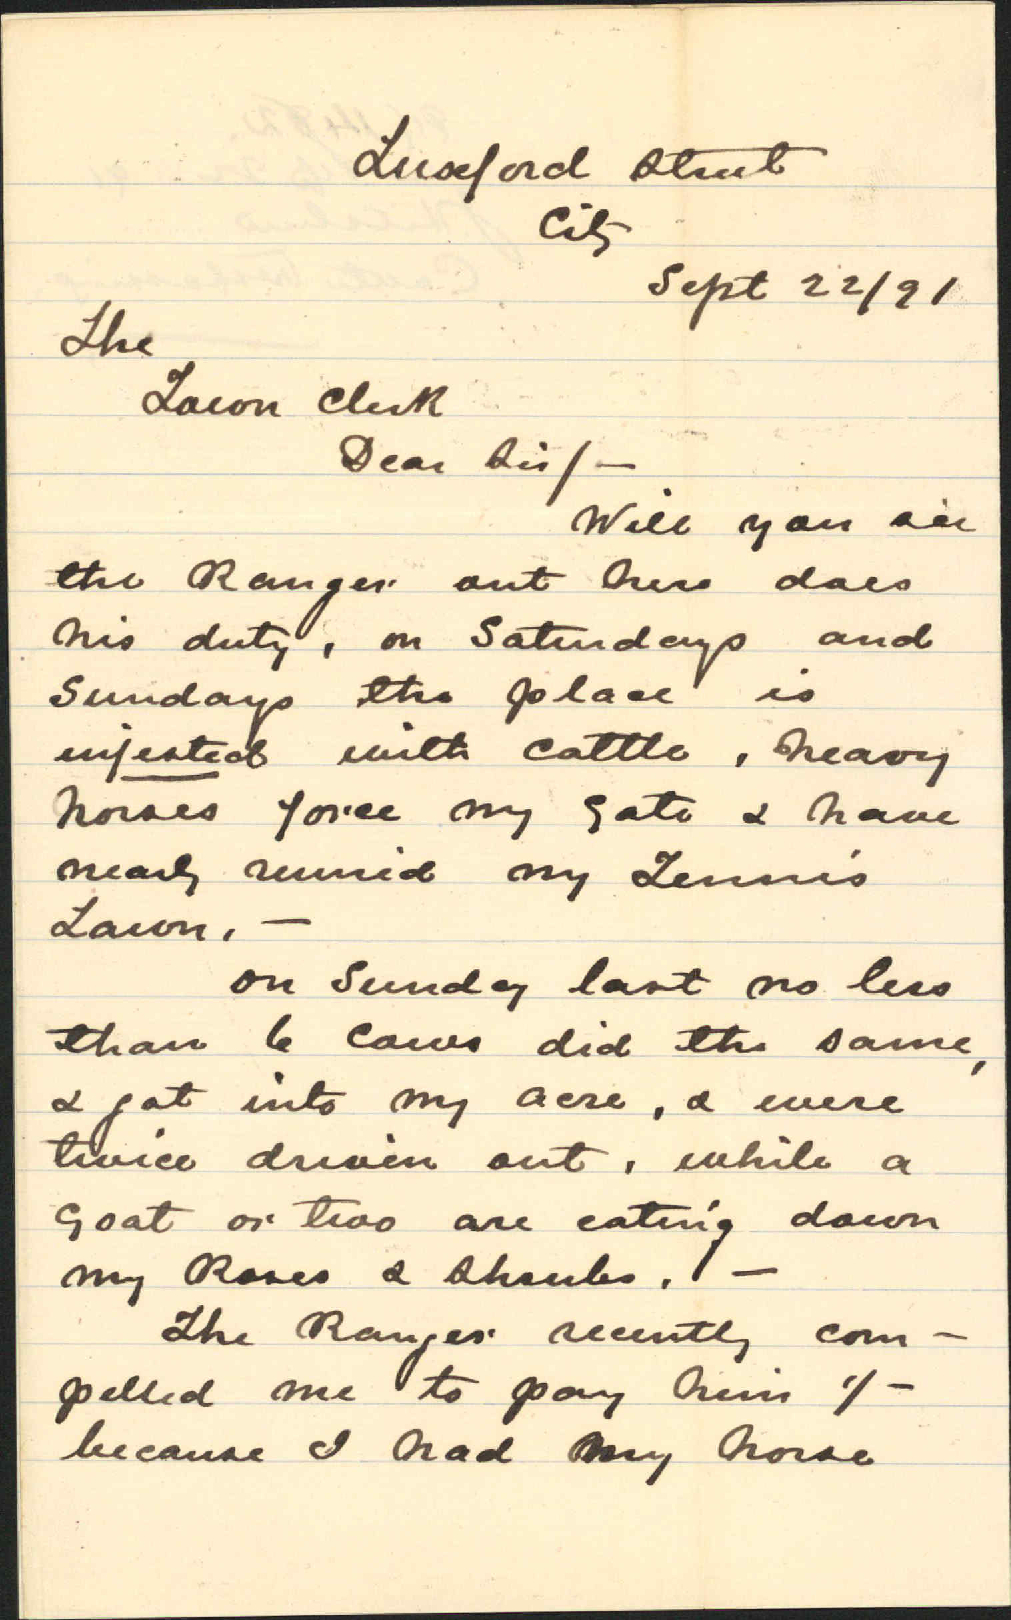 Luxford Street
City
Sept 22/91
The
Town Clerk
Dear Sir/—
Will you see
the Ranger out here does
his duty, on Saturdays and
Sundays the place is
infested with cattle, heavy
horses force my gate & have
nearly ruined my Tennis
Lawn. —
On Sunday last no less
than 6 Cows did the same,
& got into my acre, & were
twice driven out, while a
Goat or two are eating down
my Roses & Shrubs. —
The Ranger recently com-
pelled me to pay him 1/-
because I had my horse